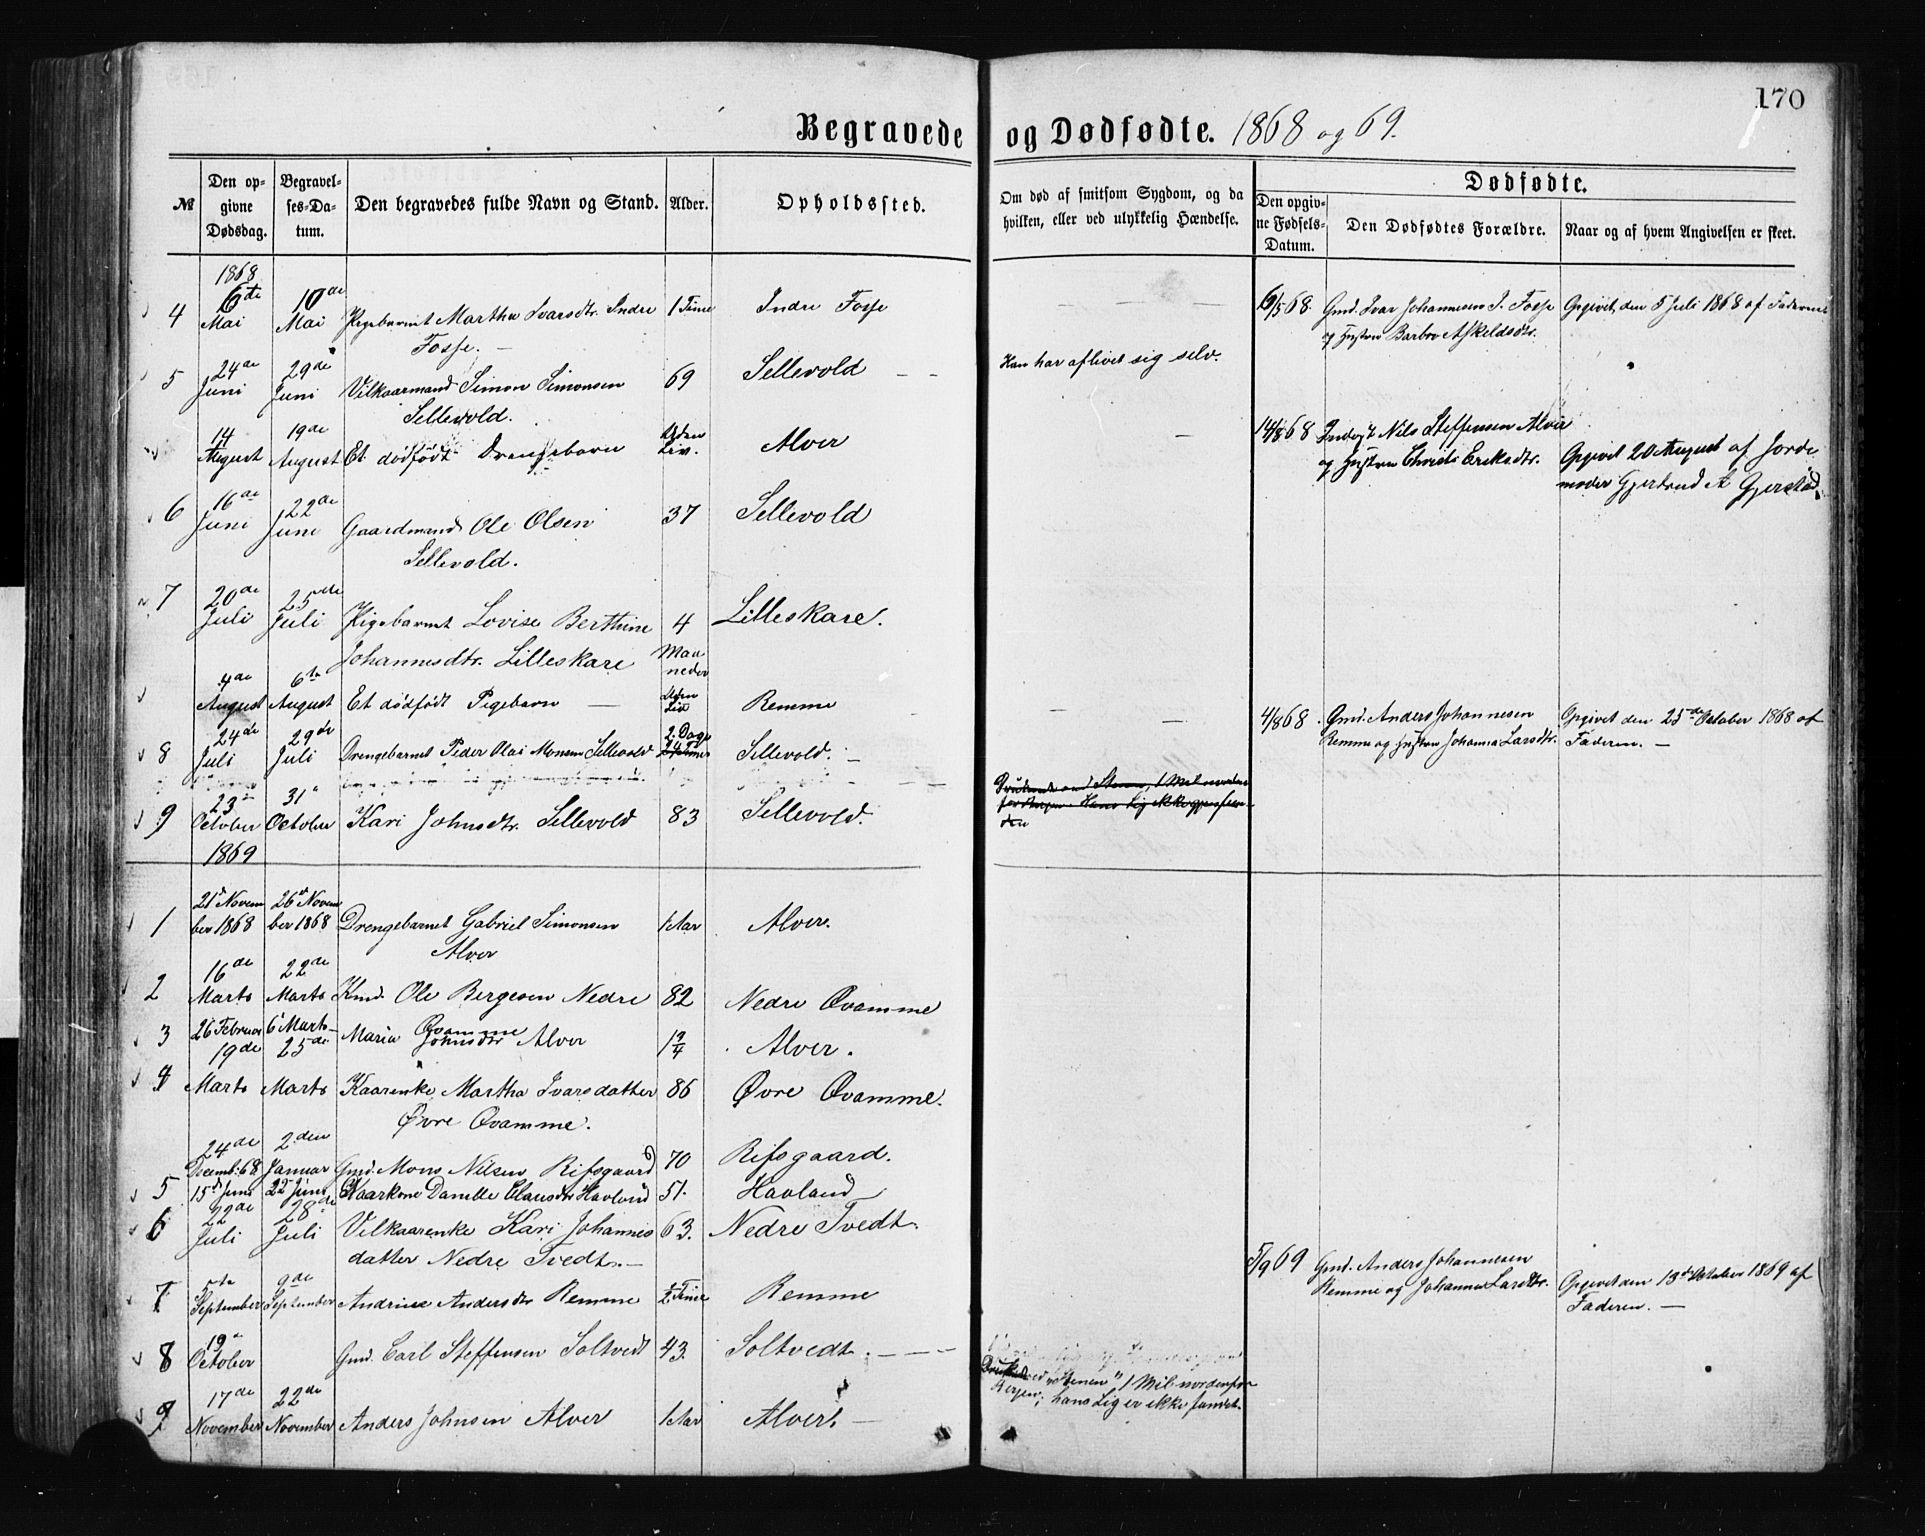 170
Begravede og Dødfødte. 1868 og 69.
№
Den opgivne Dødsdag.
Begravelses-Datum.
Den begravedes fulde Navn og Stand.
Alder.
Opholdssted.
Om død af smitsom Sygdom, og da hvilken, eller ved ulykkelig Hændelse.
Dødfødte.
Den opgivne Fødsels-Datum.
Den Dødfødtes Forældre.
Naar og af hvem Angivelsen er skeet.
1868
4 6te Mai 10de Mai Pigebarnet Martha Ivarsdtr. Indre Fosse. 1 Time Indre Fosse
6/5 68. Gmd. Ivar Johannesen I. Fosse og Hustru Barbro Askeldsdtr. Opgivet den 5 Juli 1868 af Faderen
5 24de Juni 29de Juni Vilkaarmand Simon Simonsen Sellevold. 69 Sellevold
Han har aflivet sig selv.
14 August 19de August Et dødfødt Drengebarn Uden Liv. Alver
14/8 68 Nils Steffensen Alver og Hustru Christi Eriksdtr. Opgivet 20 August af Jordemoder Gjertrud A Gjerstad
6 16de Juni 22de Juni Gaardmand Ole Olsen Sellevold. 37 Sellevold
7 20de Juli 25de Juli Pigebarnet Lovise Berthine Johannesdtr. Lilleskare 4 Maaneder Lilleskare.
4de August 6te August Et dødfødt Pigebarn Uden Liv Remme
4/8 68. Gmd. Anders Johannesen Remme og Hustru Johanna Larsdtr. Opgivet den 25de October 1868 af Faderen.
8 24de Juli 29de Juli Drengebarnet Peder Olai Monsen Sellevold 2 Dage Sellevold.
9 23de October 31te October Kari Johnsdtr. Sellevold 83 Sellevold.
1869
1 21de November 1868 26de November 1868 Drengebarnet Gabriel Simonsen Alver 1 Aar Alver.
2 16de Marts 22de Marts Kmd. Ole Bergesen Nedre Qvamme 82 Nedre Qvamme
3 26 Februar 6 Marts Maria Johnsdtr Alver 1 Alver.
4 19de Marts 25de Marts Kaarenke Martha Ivarsdatter Øvre Qvamme. 86 Øvre Qvamme.
24de Decemb: 68 2den Januar Gmd. Mons Nilsen Rifsgaard 70 Rifsgaard.
5 15de Juni 22 Juni Kaarkone Danille Clausdtr Havland 51. Havland
6 22de Juli 28de Juli Vilkaarenke Kari Johannesdatter Nedre Tvedt. 63. Nedre Tvedt.
7 5te September 9de September Andrine Andersdtr Remme ½ Time Remme
5/9 69 Gmd. Anders Johannesen Remme og Johanna Larsdtr. Opgivet den 13de October 1869 af Faderen.
8 19de October Gmd. Carl Steffensen Soltvedt 43. Soltvedt.
Druknede ved "Stenen" 1 Mil nordenfor Bergen; hans Lig er ikke fundet.
9 17de November 22de November Anders Johnsen Alver 1 Aar Alver.